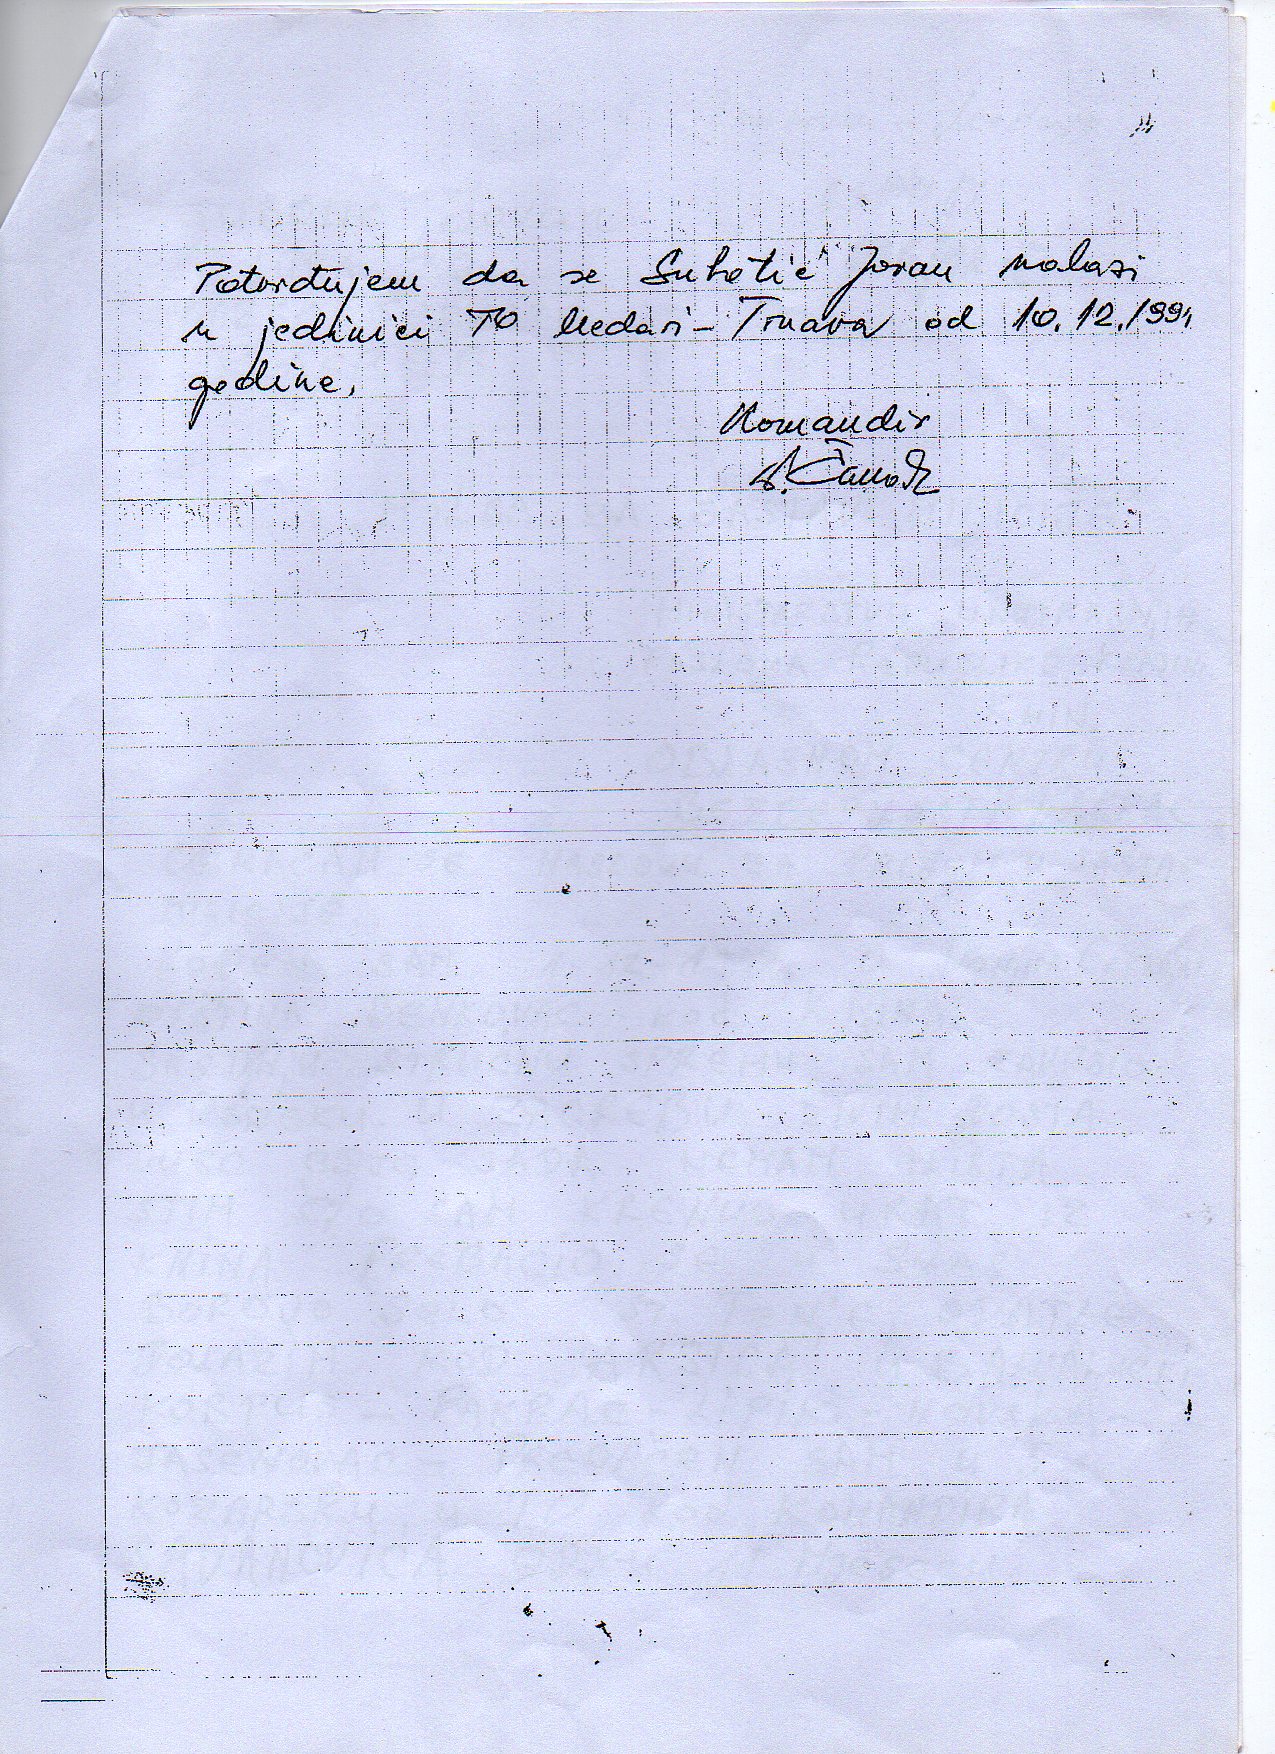 Potvrđujem da se Suhotić Zoran nalazi
u jedinici TO Medari - Trnava od 10.12.1991
godine.
Komandir